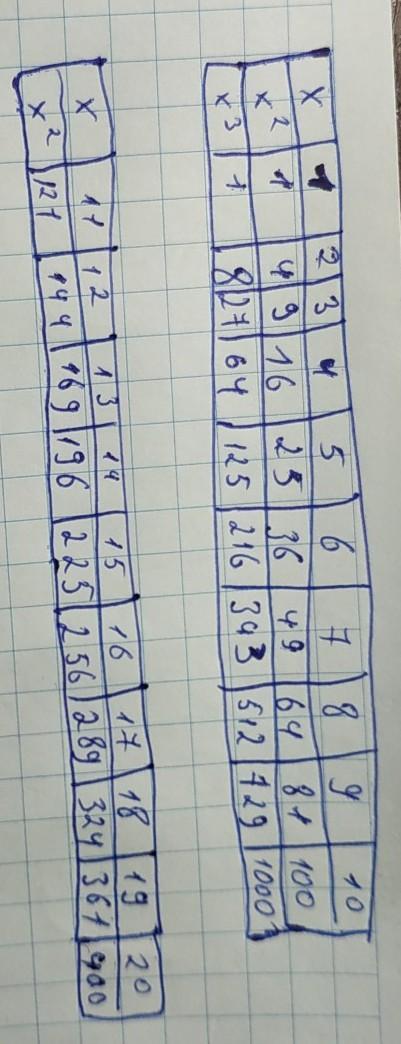 x 1 2 3 4 5 6 7 8 9 10
x² 1 4 9 16 25 36 49 64 81 100
x³ 1 8 27 64 125 216 343 512 729 1000
x 11 12 13 14 15 16 17 18 19 20
x² 121 144 169 196 225 256 289 324 361 400